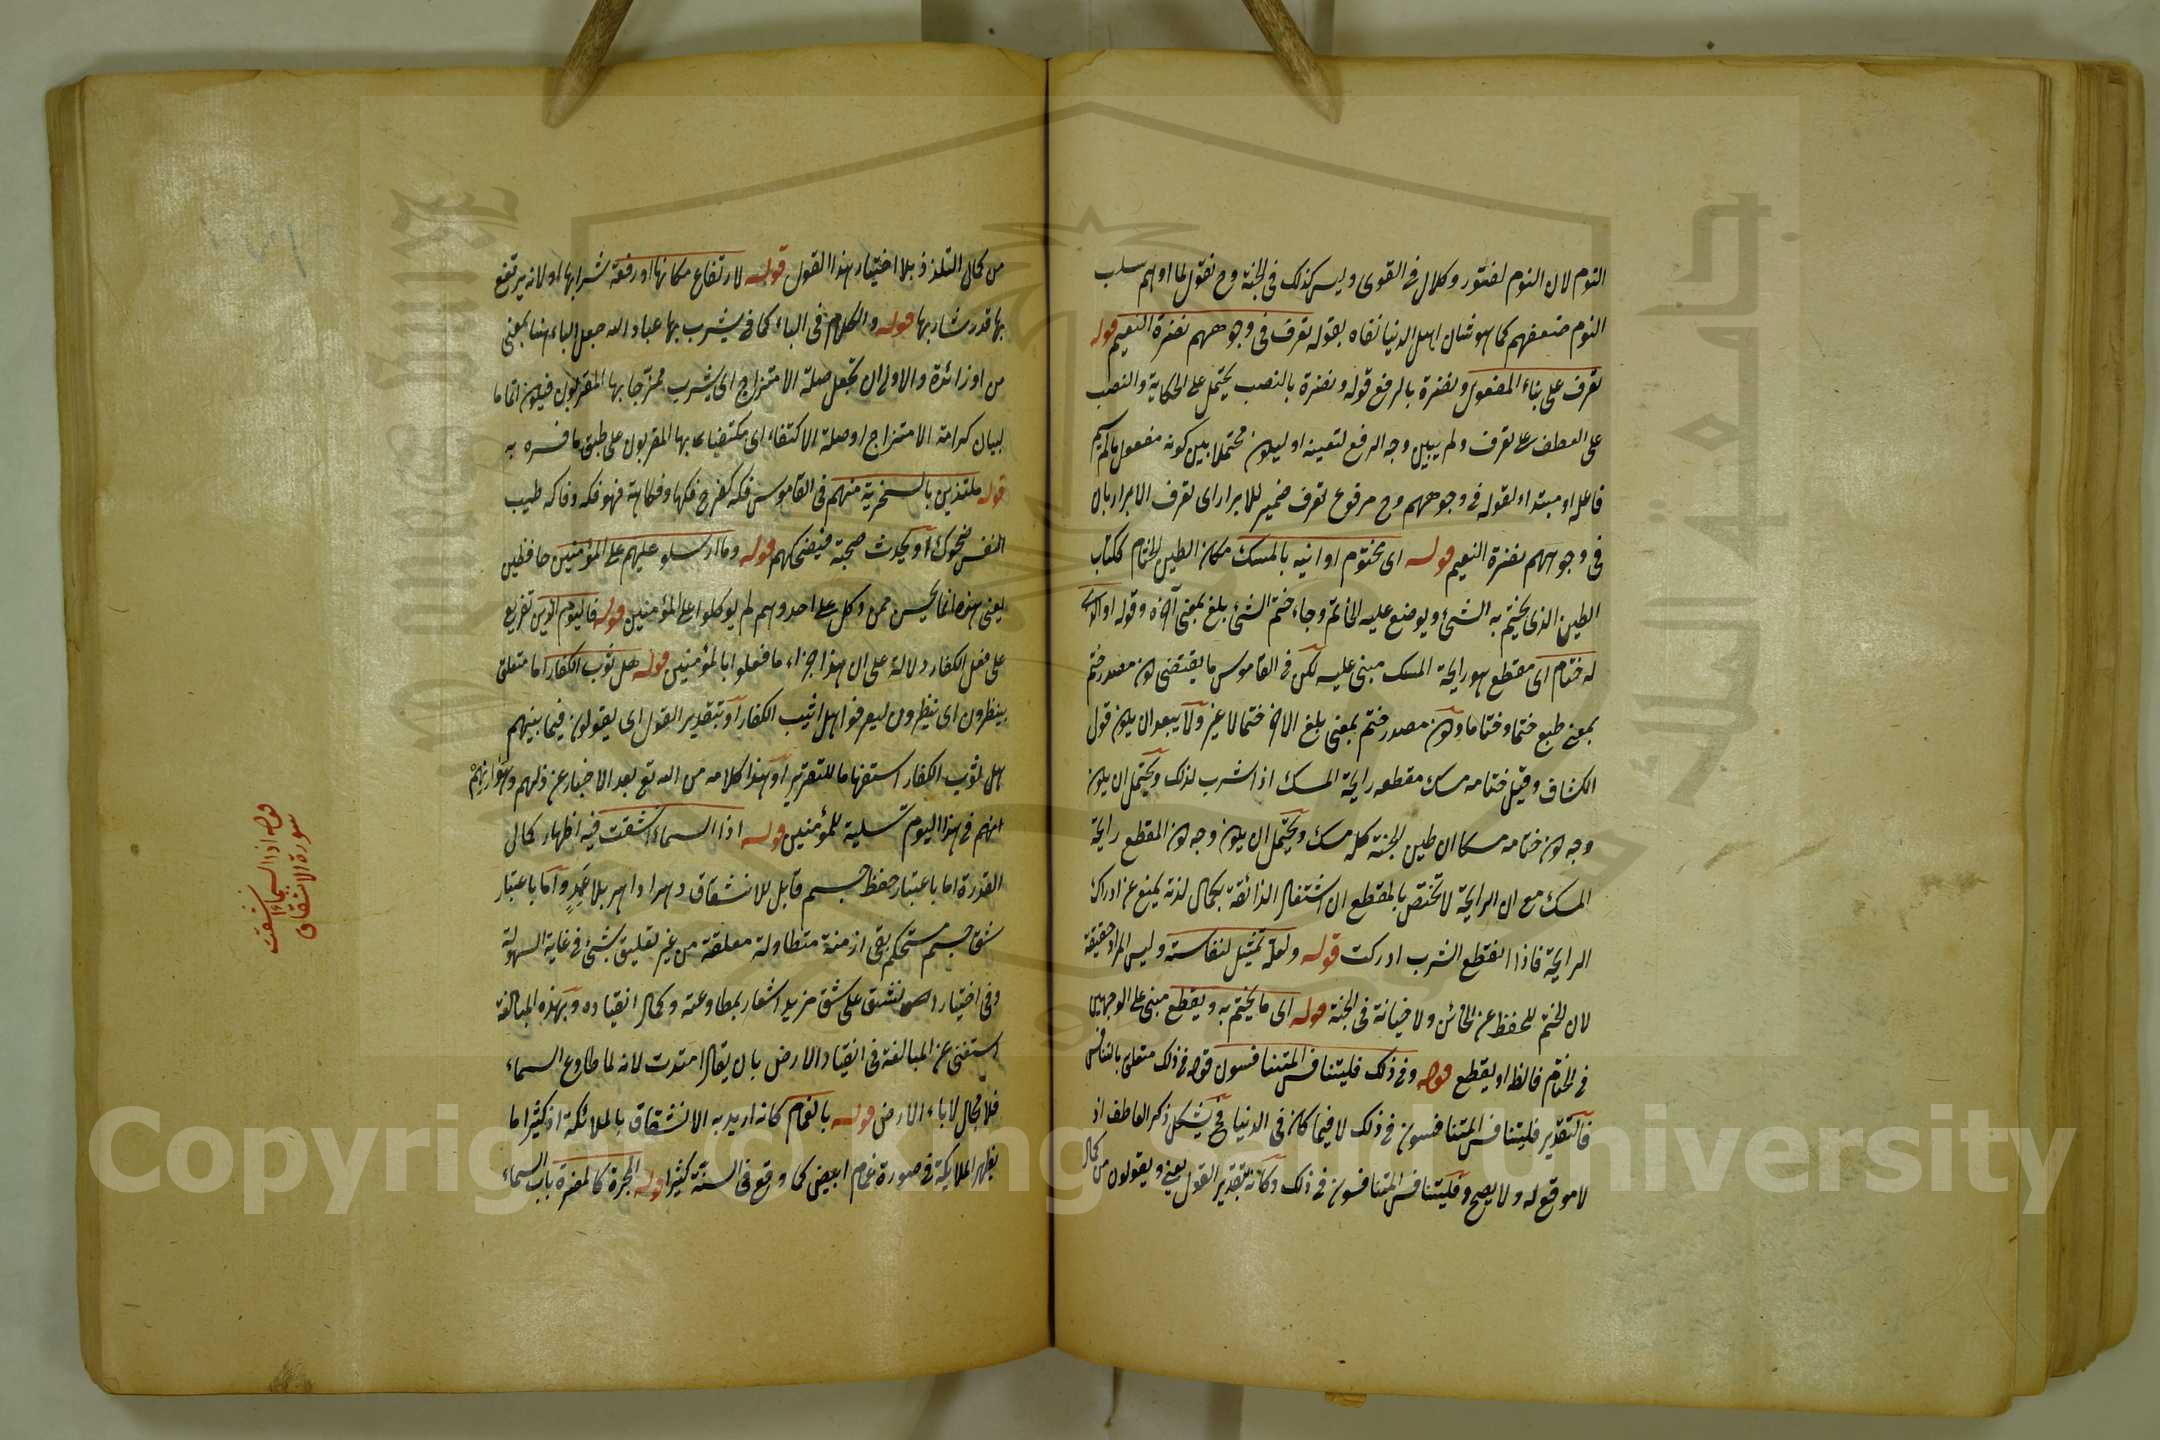 النوم لان النوم لفتور وكلال في القوى وليس كذلك في الجنة وح نقول لما اوهم سلب
النوم ضعفهم كما هو شان اهل الدنيا نفاه بقوله تعرف في وجوههم نضرة النعيم قوله
تعرف على بناء المفعول ونضرة بالرفع قوله ونضرة بالنصب يحتمل على الحكاية والنصب
على العطف على تعرف ولم يبين وجه الرفع لتعينه او ليكون محتملا بين كونه مفعول مالم يسم
فاعله او مبتدا لقوله في وجوههم وح مرفوع تعرف ضمير للابرار اى تعرف الابرار بان
في وجوههم نضرة النعيم قوله اى مختوم اوانيه بالمسك مكان الطين الختام ككتاب
الطين الذى يختم به الشئ ويوضع عليه الخاتم وجاء ختم الشئ بلغ بمعنى آخره وقوله او الذى
له ختام اى مقطع هو رايحة المسك مبنى عليه لكن في القاموس ما يقتضى كون مصدر ختم
بمعنى طبع ختما وختاما وكون مصدر ختم بمعنى بلغ الاخر ختما لا غير ولا يبعد ان يكون قول
الكشاف وقيل ختامه مسك مقطعه رايحة المسك اذا شرب لذلك ويحتمل ان يكون
وجه كون ختامه مسكا ان طين الجنة كله مسك ويحتمل ان يكون وجه كون المقطع رايحة
المسك مع ان الرايحة لا تختص بالمقطع ان اشتغال الذائقة بكمال لذته يمنع عن ادراك
الرايحة فاذا انقطع الشرب ادركت قوله ولعله تمثيل لنفاسته وليس المراد حقيقة
لان الختم للحفظ عن الخائن ولا خيانة في الجنة قوله اى ما يختم به ويقطع مبنى على الوجهين
في الختام فالظ او يقطع قوله وفي ذلك فليتنافس المتنافسون قوله في ذلك متعلق بالتنافس
فالتقدير فليتنافس المتنافسون في ذلك لا فيما كان في الدنيا فح يشكل ذكر العاطف اذ
لا موقع له ولا يصح وفليتنافس المتنافسون في ذلك وكانه بتقدير القول يعنى ويقولون من كمال
من كمال التلذذ بلا اختيار هذا القول قوله لارتفاع مكانها او رفعة شرابها او لانه يرتفع
بها قدر شاربها قوله والكلام في الباء كما في يشرب بها عباد الله جعل الباء هنا بمعنى
من او زائدة والاولى ان تجعل صلة الامتزاج اى يشرب ممتزجا بها المقربون فيكون اتماما
لبيان كرامة الامتزاج او صلة الاكتفاء اى مكتفيا بها المقربون على طبق ما فسره به
قوله ملتذين بالسخرية منهم في القاموس فكه كفرح فكها وفكاهة فهو فكه وفاكه طيب
النفس ضحوك او يحدث صحبه فيضحكهم قوله وما ارسلوا عليهم على المؤمنين حافظين
يعنى هذا انما يحسن ممن وكل على احد وهم لم يوكلوا على المؤمنين قوله فاليوم الذين تفريع
على فعل الكفار دلالة على ان هذا جزاء ما فعلوا بالمؤمنين قوله هل ثوب الكفار اما متعلق
بينظرون اى ينظرون ليعرفوا هل اثيب الكفار او بتقدير القول اى يقولون فيما بينهم
هل ثوب الكفار استفهاما للتقرير او هذا كلامه من الله تع بعد الاخبار عن ذلهم
انهم في هذا اليوم تسلية للمؤمنين قوله اذا السماء انشقت فيه اظهار كمال
القدرة اما باعتبار حفظ جسم قابل للانشقاق دهرا داهرا بلا عمد واما باعتبار
شق جسم مستحكم بقى ازمنة متطاولة معلقة من غير تعليق بشئ في غاية السهولة
وفي اختيار انشق على شق مزيد اشعار بمطاوعته وكمال انقياده وبهذه المبالغة
استغنى عن المبالغة في انقياد الارض بان يقال امتدت لانه لما طاوع السماء
فلا مجال لاباء الارض قوله بالغمام كانه اريد به الانشقاق بالملائكة اذ كثيرا ما
يظهر الملايكة في صورة غمام ابيض كما وقع في السنة كثيرا قوله المجرة كالمضرة باب السماء
قوله اذا السماء انشقت
سورة الانشقاق
Copyright © King Saud University